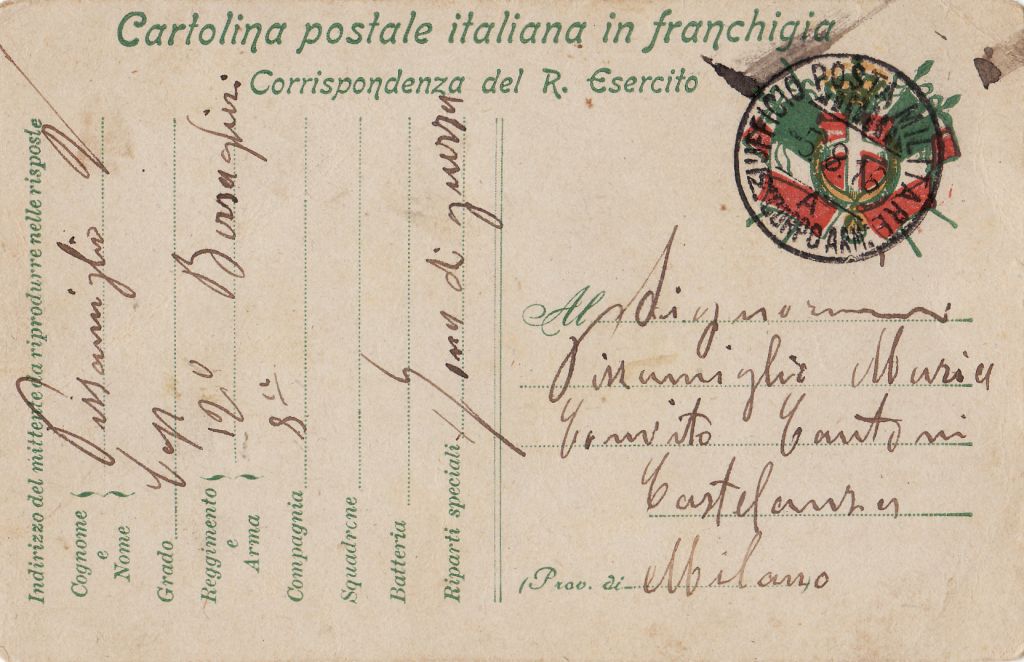 Cartolina postale italiana in franchigia
Corrispondenza del R. Esercito
UFFICIO POSTA MILITARE
CORPO ARM.
A
Indirizzo del mittente da riprodurre nelle risposte
Cognome e Nome
Pissamiglio
Grado Cap
Reggimento e Arma 12º Bersaglieri
Compagnia 8ª
Squadrone
Batteria
Riparti speciali Zona di guerra
Al Signor
Pissamiglio Maria
Convito Cantoni
Castelanza
(Prov. di Milano)